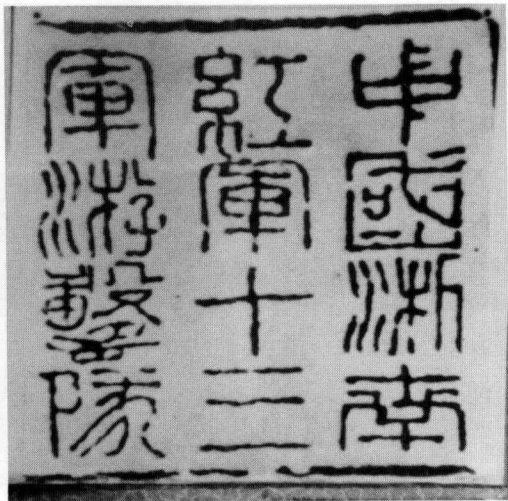 中國浙南
紅軍十三
軍游擊隊